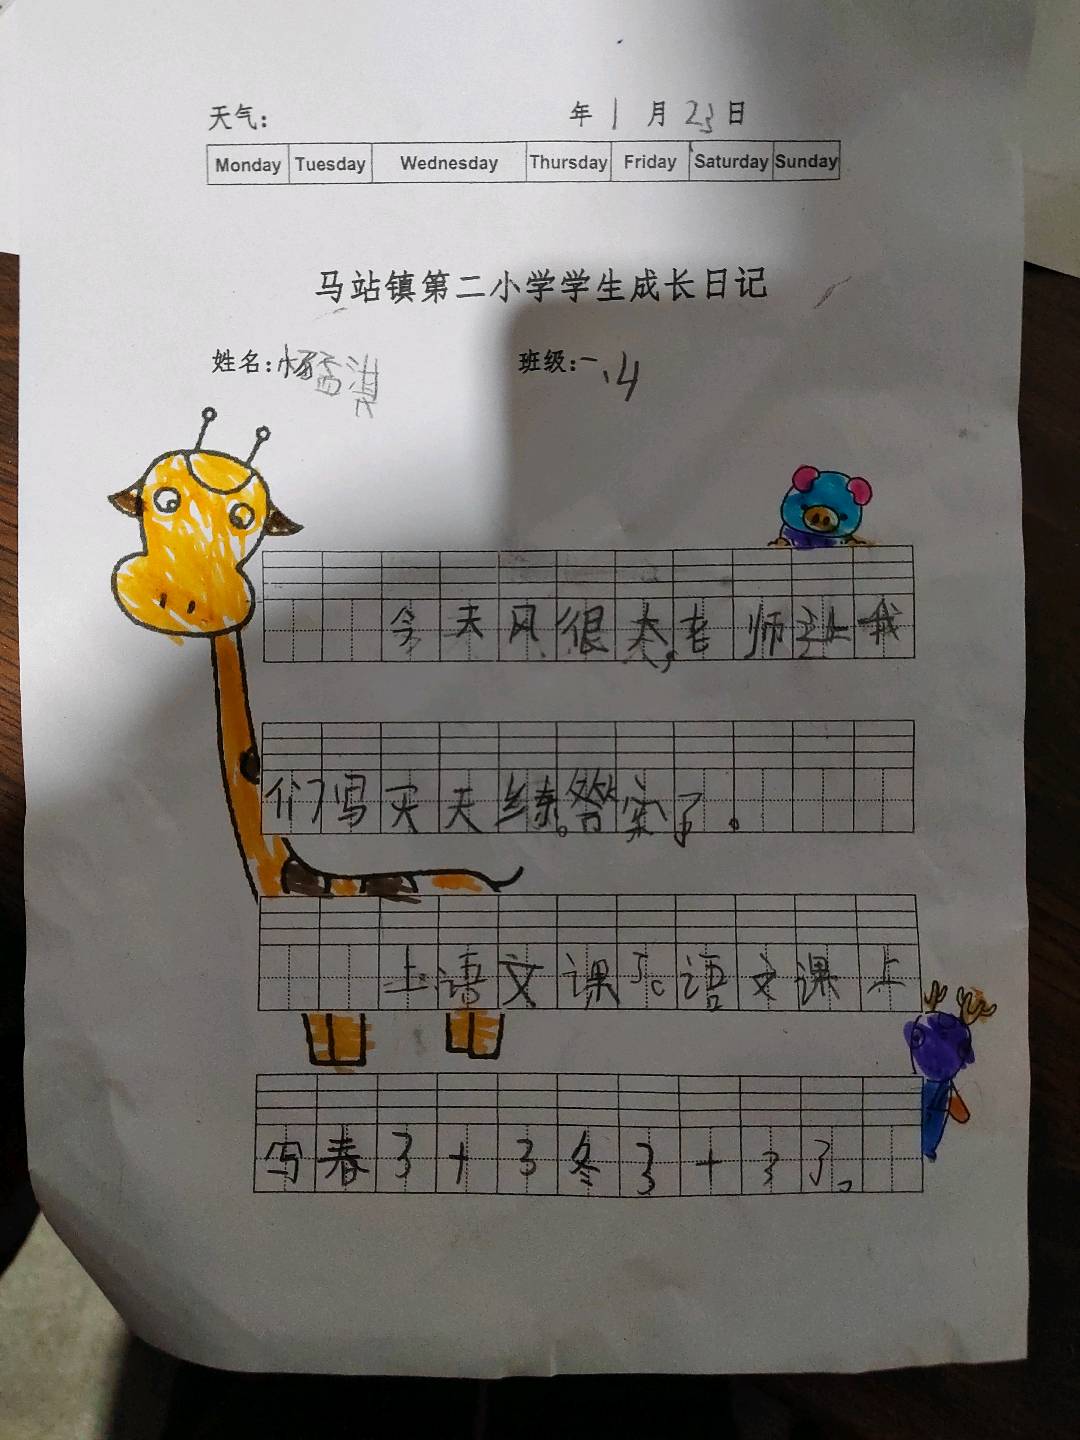 天气: 年 1 月 23 日
Monday Tuesday Wednesday Thursday Friday Saturday Sunday
马站镇第二小学学生成长日记
姓名:杨孟淇 班级:一、4
今天风很大,老师让我
们写天天练。答案了。
上语文课了。语文课上
写春了十了冬了十了了。